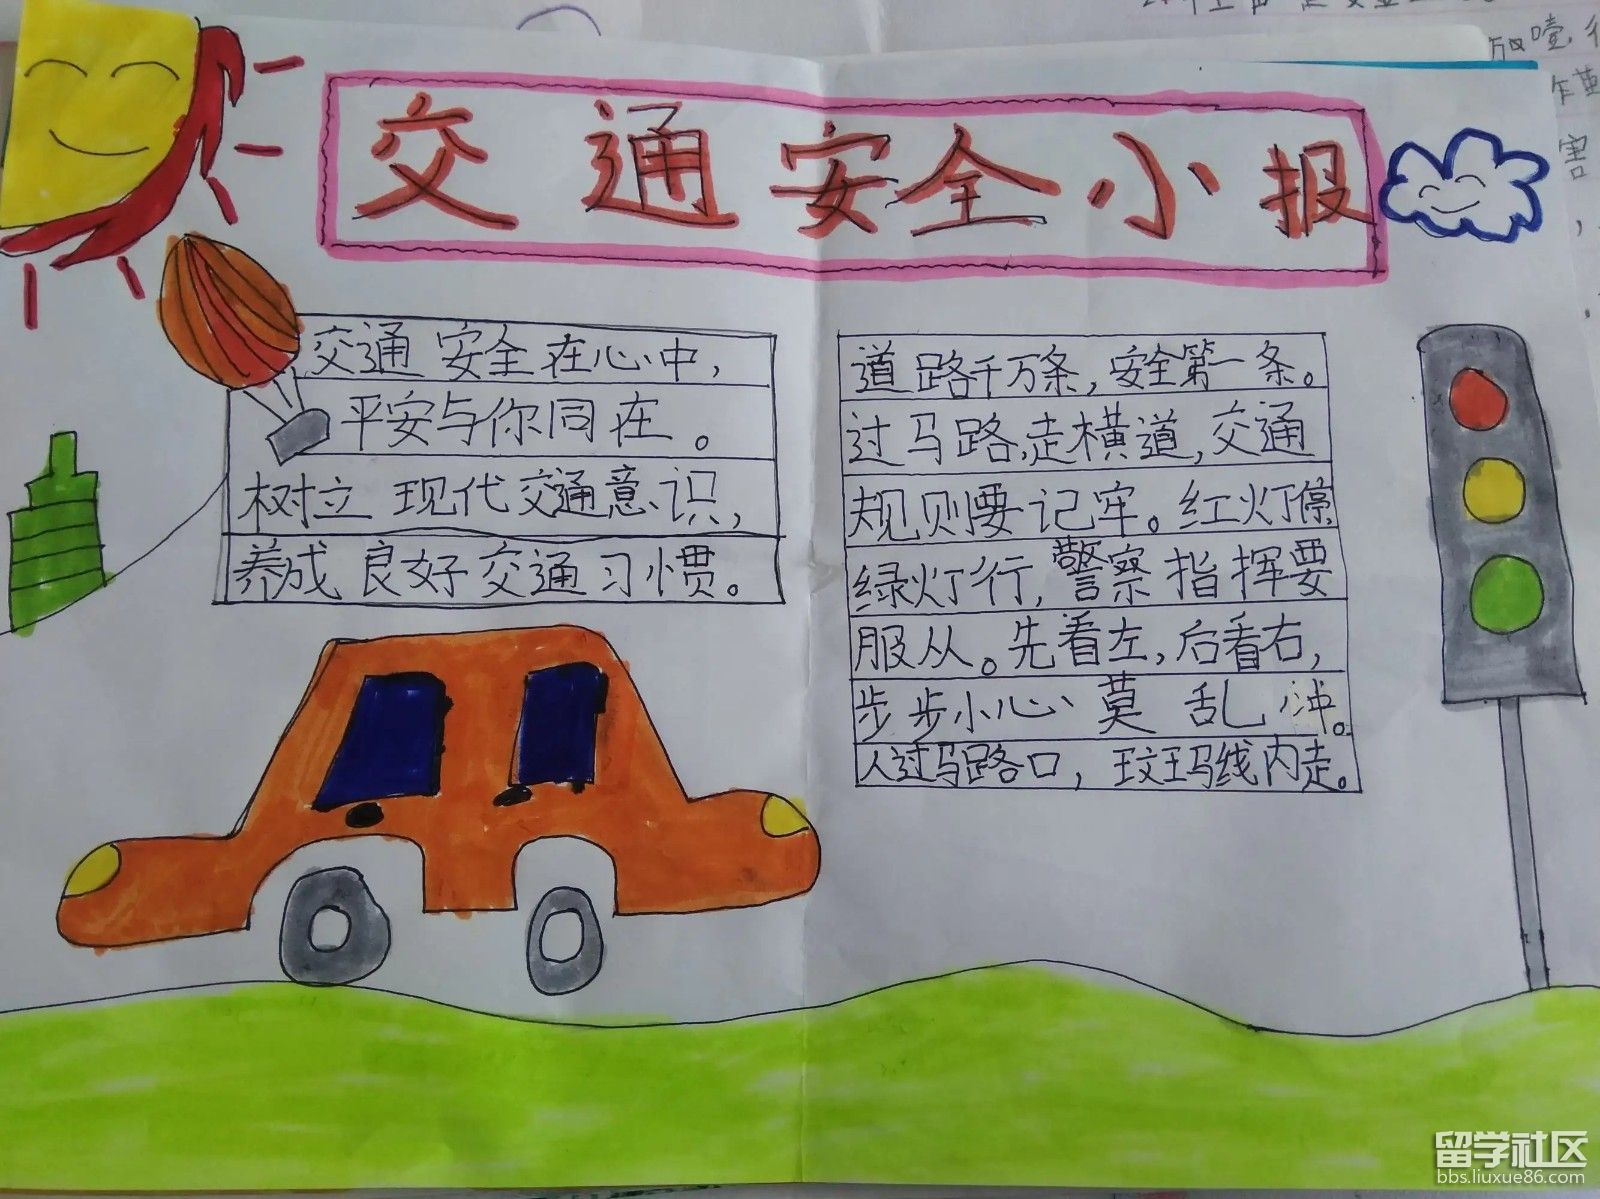 交通安全小报
交通安全在心中,
平安与你同在。
树立现代交通意识,
养成良好交通习惯。
道路千万条,安全第一条。
过马路,走横道,交通
规则要记牢。红灯停
绿灯行,警察指挥要
服从。先看左,后看右,
步步小心、莫乱冲。
人过马路口,斑马线内走。
留学社区
bbs.liuxue86.com